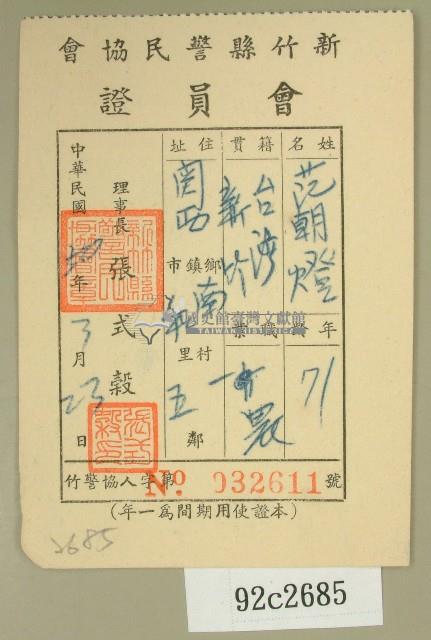 新竹縣警民協會
會員證
姓名
范朝燈
年齡
71
籍貫
台灣新竹
職業
農
住址
關西
鄉鎮市
南
村里
五
鄰
理事長張式穀
中華民國
年
3月
23日
竹警協人字第
No 032611號
(本證使用期間為一年)
2685
92c2685
國史館臺灣文獻館
TAIWAN HISTORICA